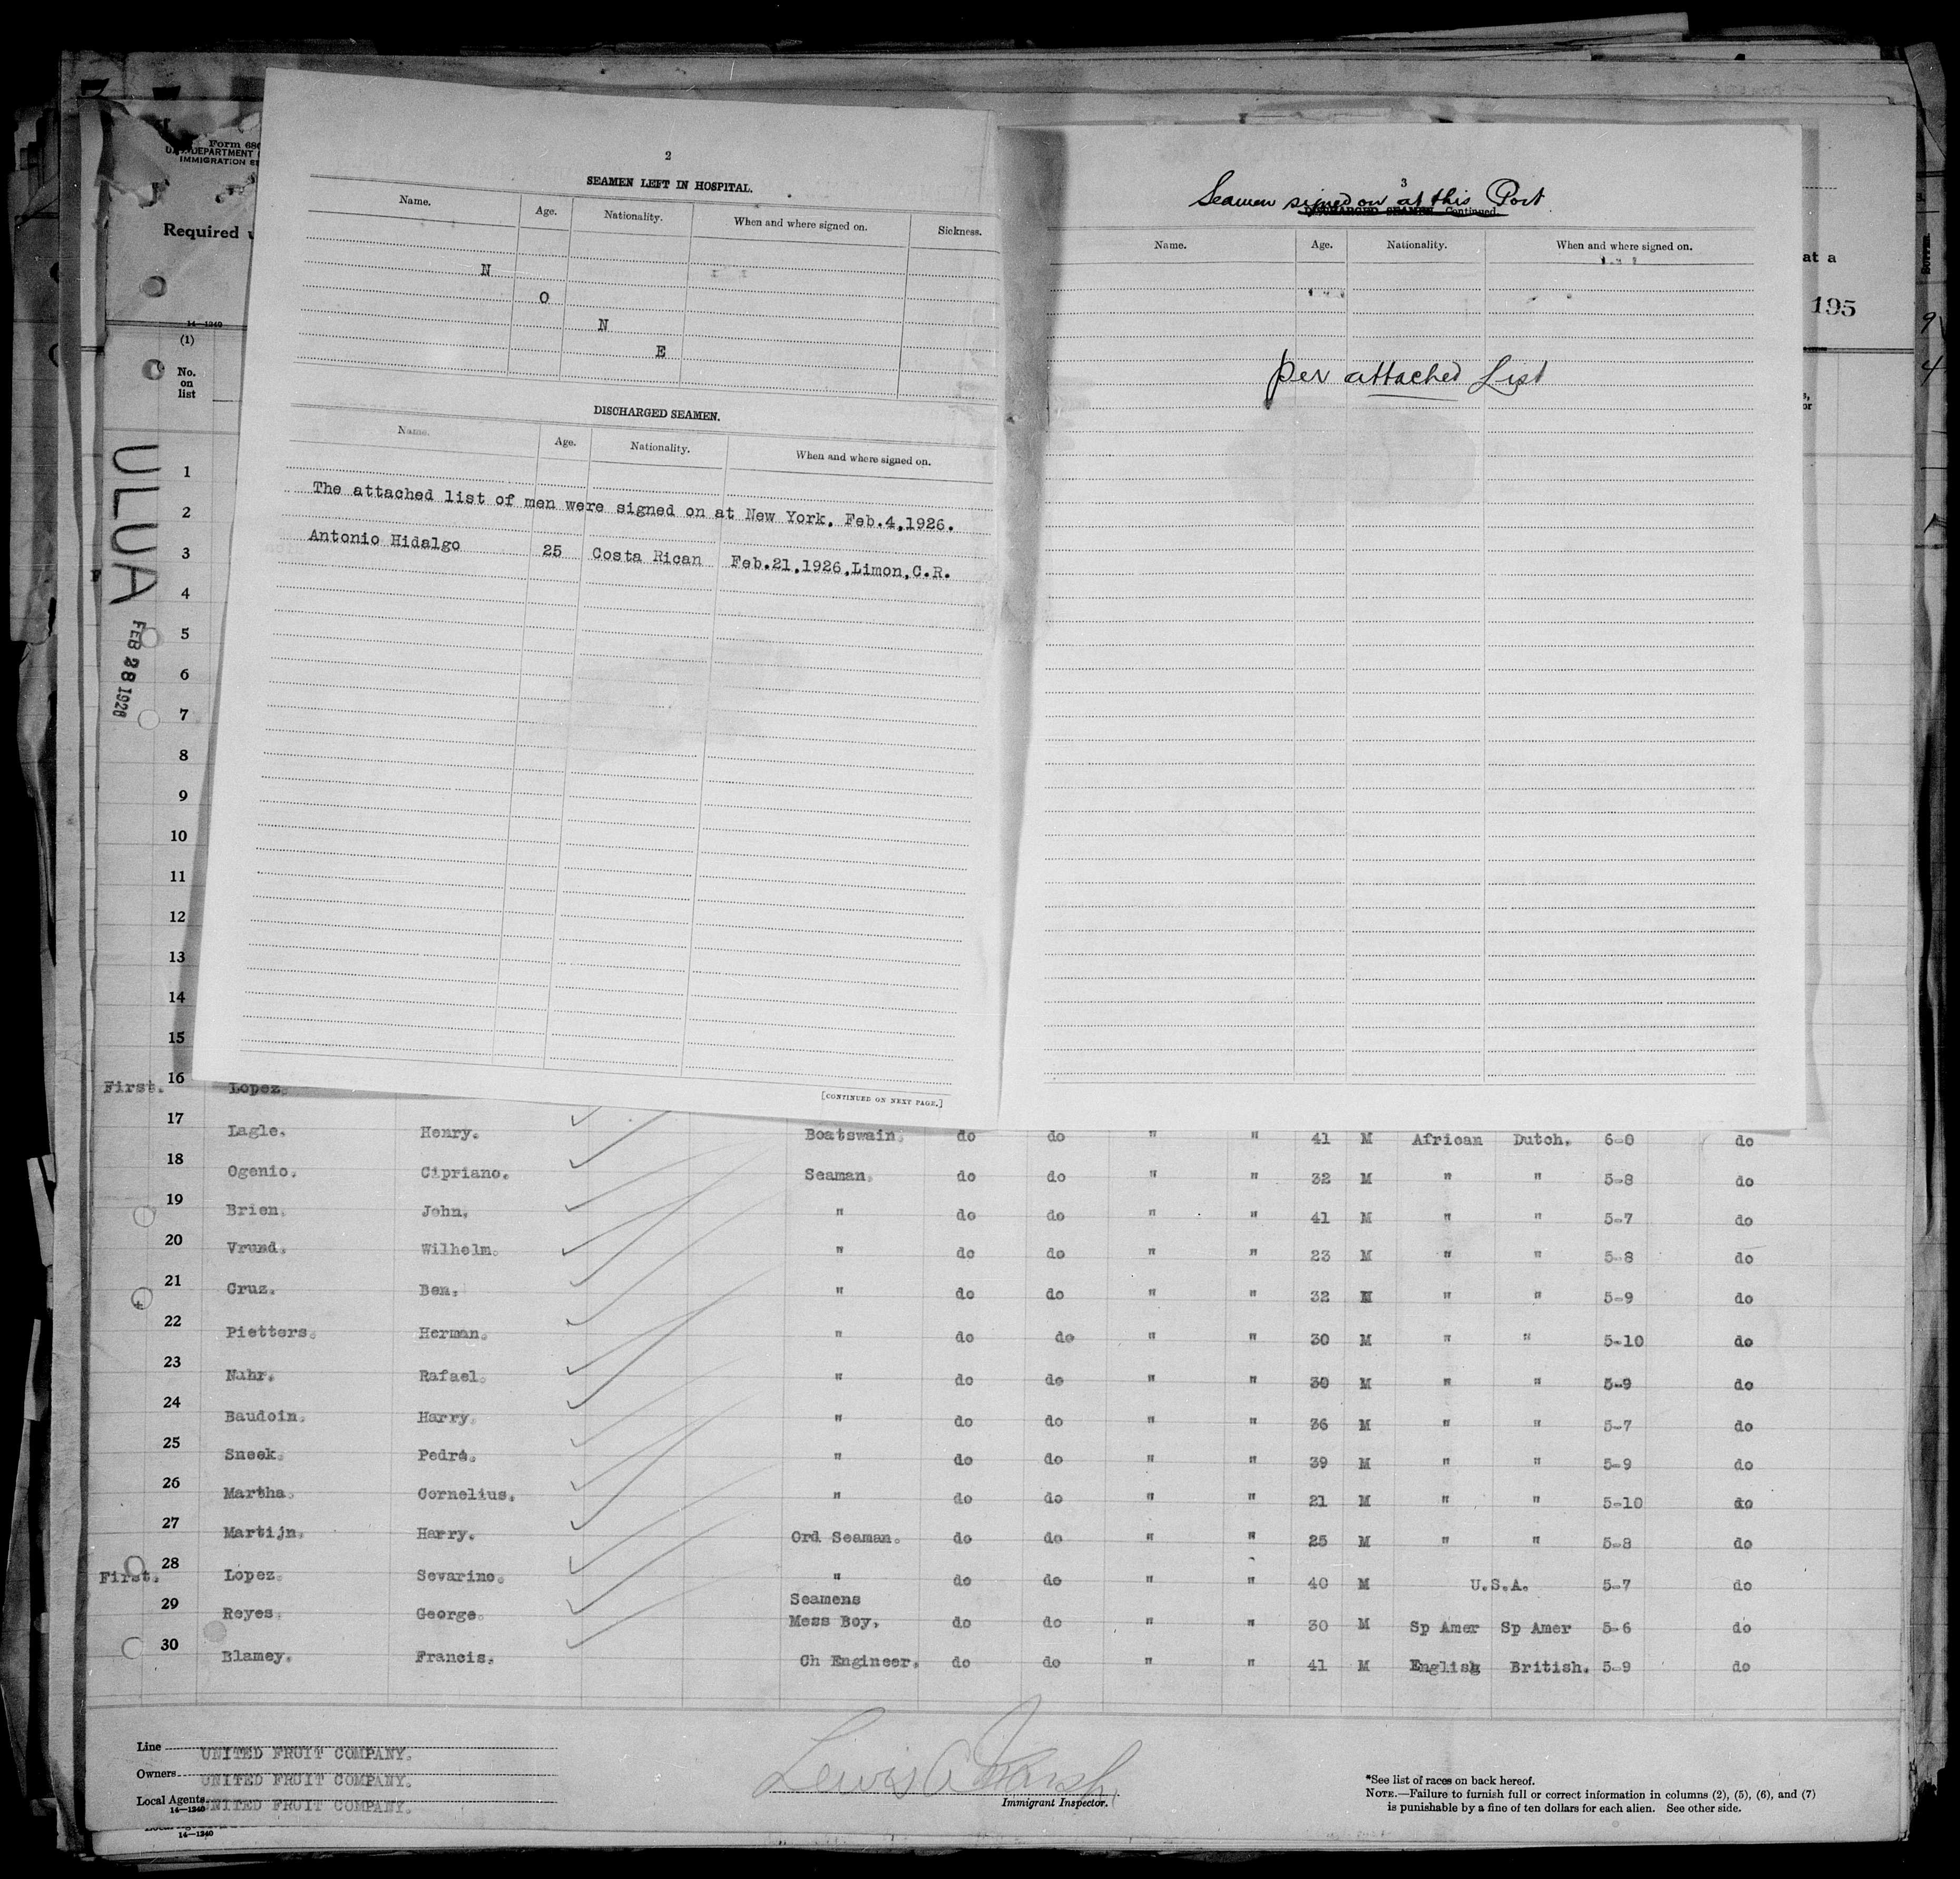 Form 680
U.S. DEPARTMENT
IMMIGRATION
Required
14—1240
(1)
No.
on
list
ULUA
FEB 28 1926
2
SEAMEN LEFT IN HOSPITAL.
Name. Age. Nationality. When and where signed on. Sickness.
N
O
N
E
DISCHARGED SEAMEN.
Name. Age. Nationality. When and where signed on.
The attached list of men were signed on at New York. Feb.4,1926.
Antonio Hidalgo 25 Costa Rican Feb.21,1926,Limon,C.R.
[CONTINUED ON NEXT PAGE.]
3
Seamen signed on at this Port
DISCHARGED SEAMEN—Continued.
Name. Age. Nationality. When and where signed on.
per attached List
at a
195
1
2
3
4
5
6
7
8
9
10
11
12
13
14
15
First. 16 Lopez.
17 Lagle. Henry. Boatswain. do do " " 41 M African Dutch. 6-0 do
18 Ogenio. Cipriano. Seaman. do do " " 32 M " " 5-8 do
19 Brien. John. " do do " " 41 M " " 5-7 do
20 Vrund. Wilhelm. " do do " " 23 M " " 5-8 do
21 Cruz. Ben. " do do " " 32 M " " 5-9 do
22 Pietters. Herman. " do do " " 30 M " " 5-10 do
23 Nahr. Rafael. " do do " " 30 M " " 5-9 do
24 Baudoin. Harry. " do do " " 36 M " " 5-7 do
25 Sneek. Pedro. " do do " " 39 M " " 5-9 do
26 Martha. Cornelius. " do do " " 21 M " " 5-10 do
27 Martijn. Harry. Ord Seaman. do do " " 25 M " " 5-8 do
First. 28 Lopez. Severino. " do do " " 40 M U.S.A. 5-7 do
29 Reyes. George. Seamens Mess Boy. do do " " 30 M Sp Amer Sp Amer 5-6 do
30 Blamey. Francis. Ch Engineer. do do " " 41 M English British. 5-9 do
Line UNITED FRUIT COMPANY.
Owners UNITED FRUIT COMPANY.
Local Agents UNITED FRUIT COMPANY.
14—1240
14—1240
Immigrant Inspector.
*See list of races on back hereof.
NOTE.—Failure to furnish full or correct information in columns (2), (5), (6), and (7)
is punishable by a fine of ten dollars for each alien. See other side.